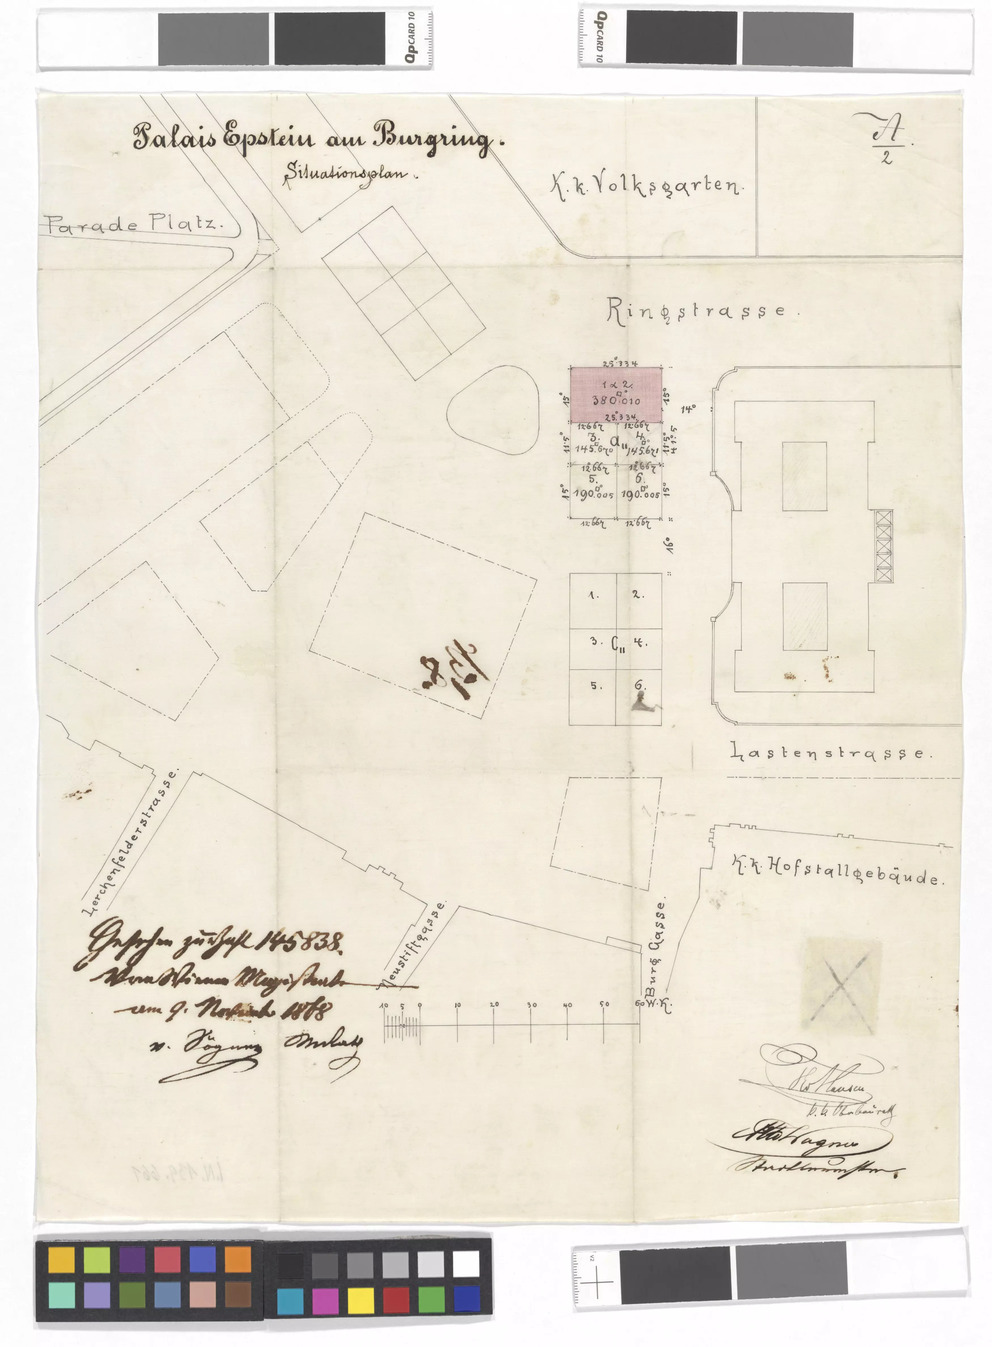 QpCARD 10
QpCARD 10
Palais Epstein am Burgring.
Situationsplan.
A
2
K. k. Volksgarten.
Parade Platz.
Ringstrasse.
25°334
1 & 2.
15° 380.010 15°
14°
25°334
12°667 12°667
3. a,, 4.
11°5 145.670 145.671 11°5
12°667 12°667
5. 6.
15° 190.005 190.005 15°
12°667 12°667
16°
1. 2.
3. C,, 4.
5. 6.
Lastenstrasse.
Lerchenfelderstrasse.
K. k. Hofstallgebäude.
Neustiftgasse.
Burg Gasse.
Gesehen zur Zahl 145838.
Vom Wiener Magistrate
am 9. November 1868
10 5 0 10 20 30 40 50 60 W.K.
Otto Wagner